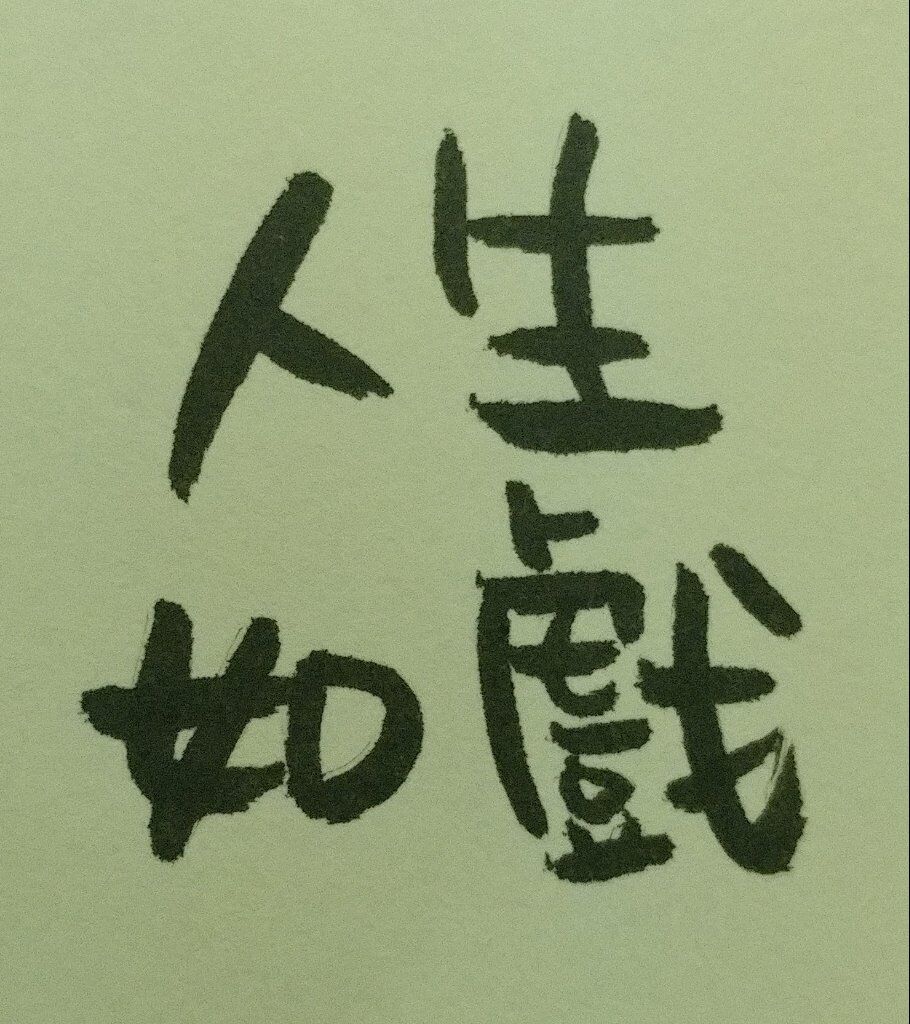 人生
如戲